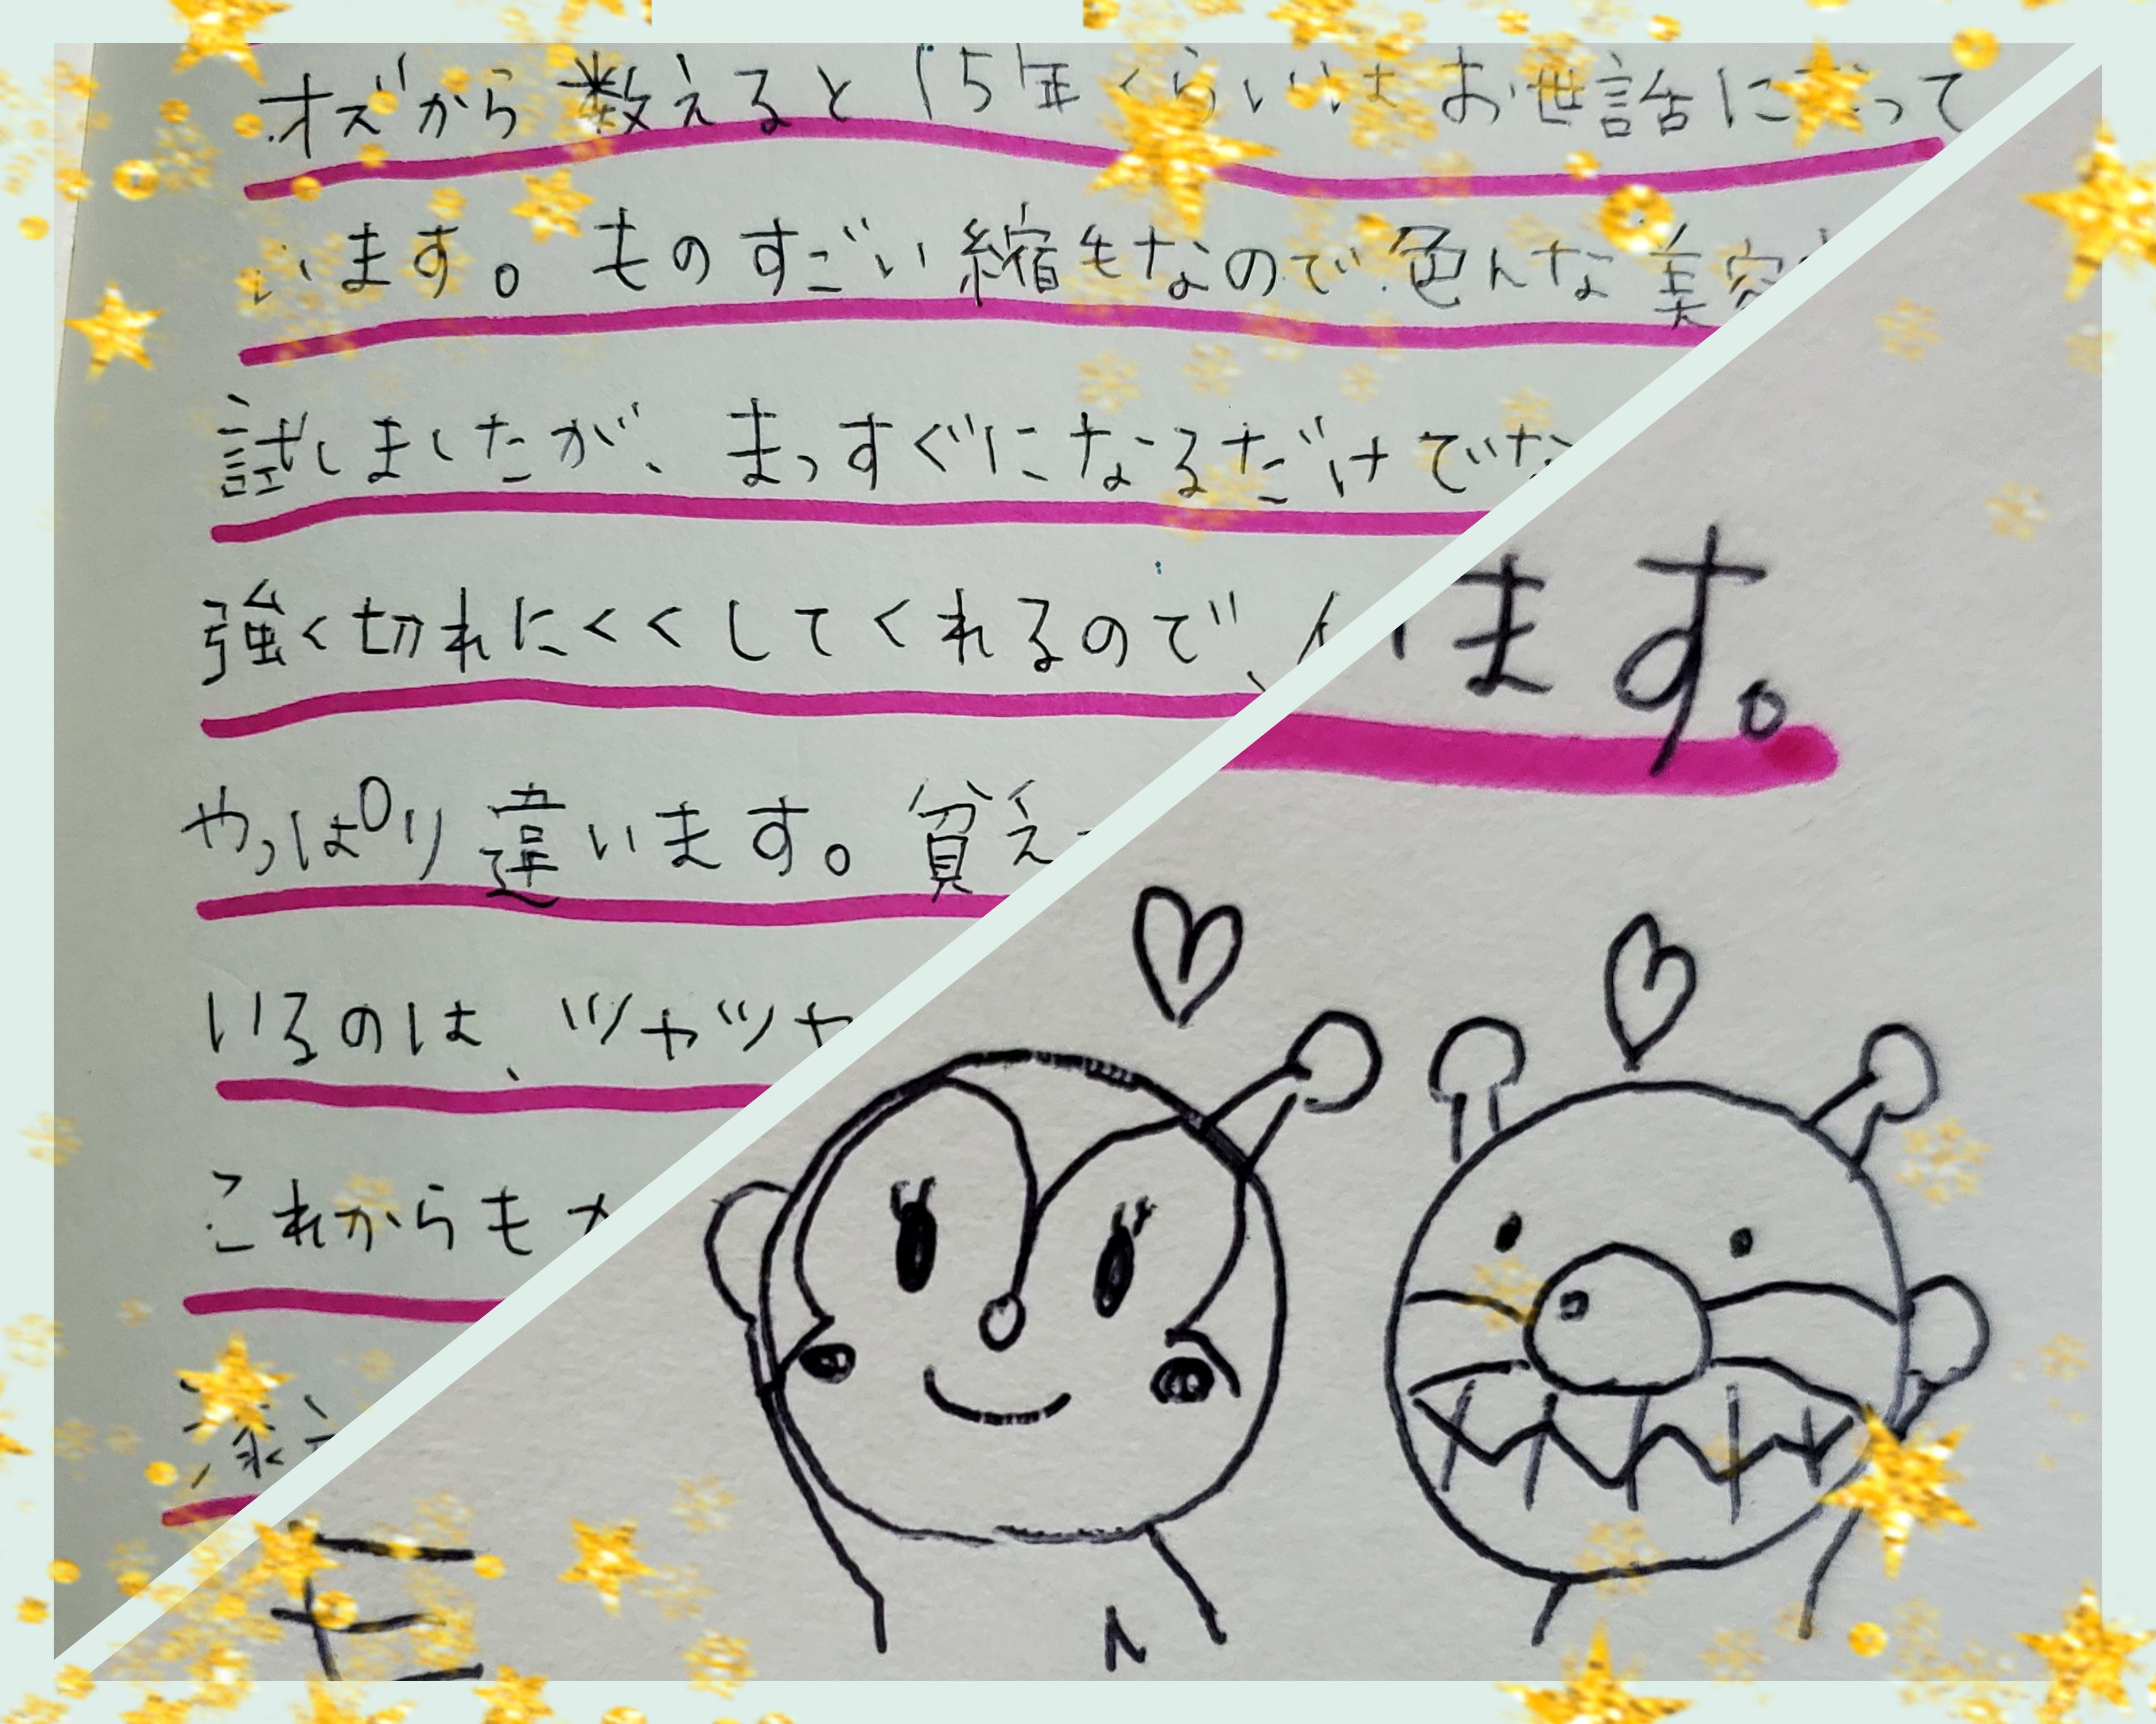 オズから数えると15年くらいはお世話になって
います。ものすごい縮毛なので色んな美容
試しましたが、まっすぐになるだけでな
強く切れにくくしてくれるので、
やっぱり違います。貧え
いるのは、ツヤツヤ
これからも
ます。